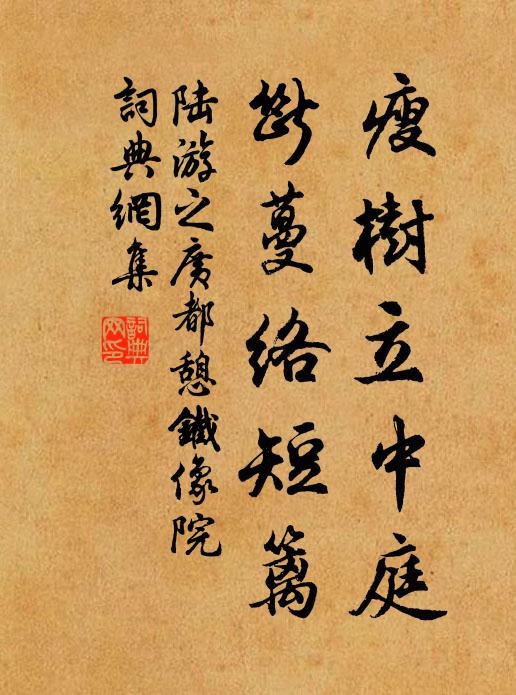 瘦樹立中庭
斷蔓絡短籬
陆游之廣都憩鐵像院
詞典網集
詞典網印